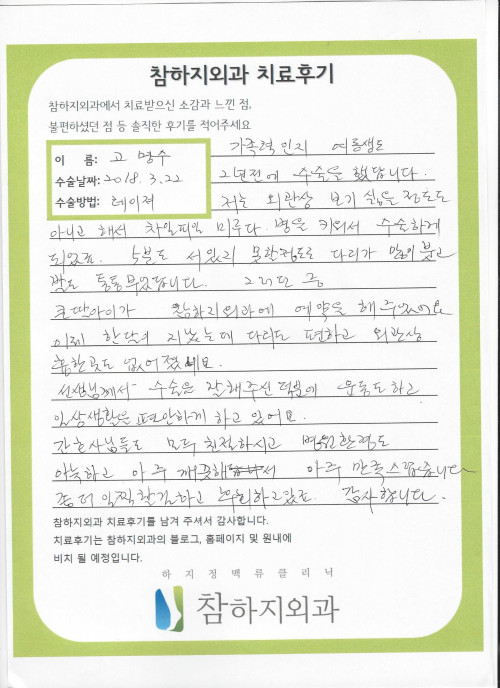 참하지외과 치료후기
참하지외과에서 치료받으신 소감과 느낀 점,
불편하셨던 점 등 솔직한 후기를 적어주세요
이 름: 고 명수
수술날짜: 2018. 3. 22
수술방법: 레이져
가족력인지 여동생도
2년전에 수술을 했답니다.
저는 외관상 보기 싫을 정도도
아니고 해서 차일피일 미루다 병을 키워서 수술하게
되었죠. 5분도 서있지 못할정도로 다리가 많이 붓고
발도 퉁퉁부었답니다. 그러던 중
큰딸아이가 참하지외과에 예약을 해주었어요
이제 한달이 지났는데 다리도 편하고 외관상
흉한곳도 없어졌네요.
선생님께서 수술을 잘해주신 덕분에 운동도하고
일상생활을 편안하게 하고 있어요.
간호사님들도 모두 친절하시고 병원환경도
아늑하고 아주 깨끗해서 아주 만족스럽습니다
좀 더 일찍할걸하고 후회하고있죠. 감사합니다.
참하지외과 치료후기를 남겨 주셔서 감사합니다.
치료후기는 참하지외과의 블로그, 홈페이지 및 원내에
비치 될 예정입니다.
하지정맥류클리닉
참하지외과